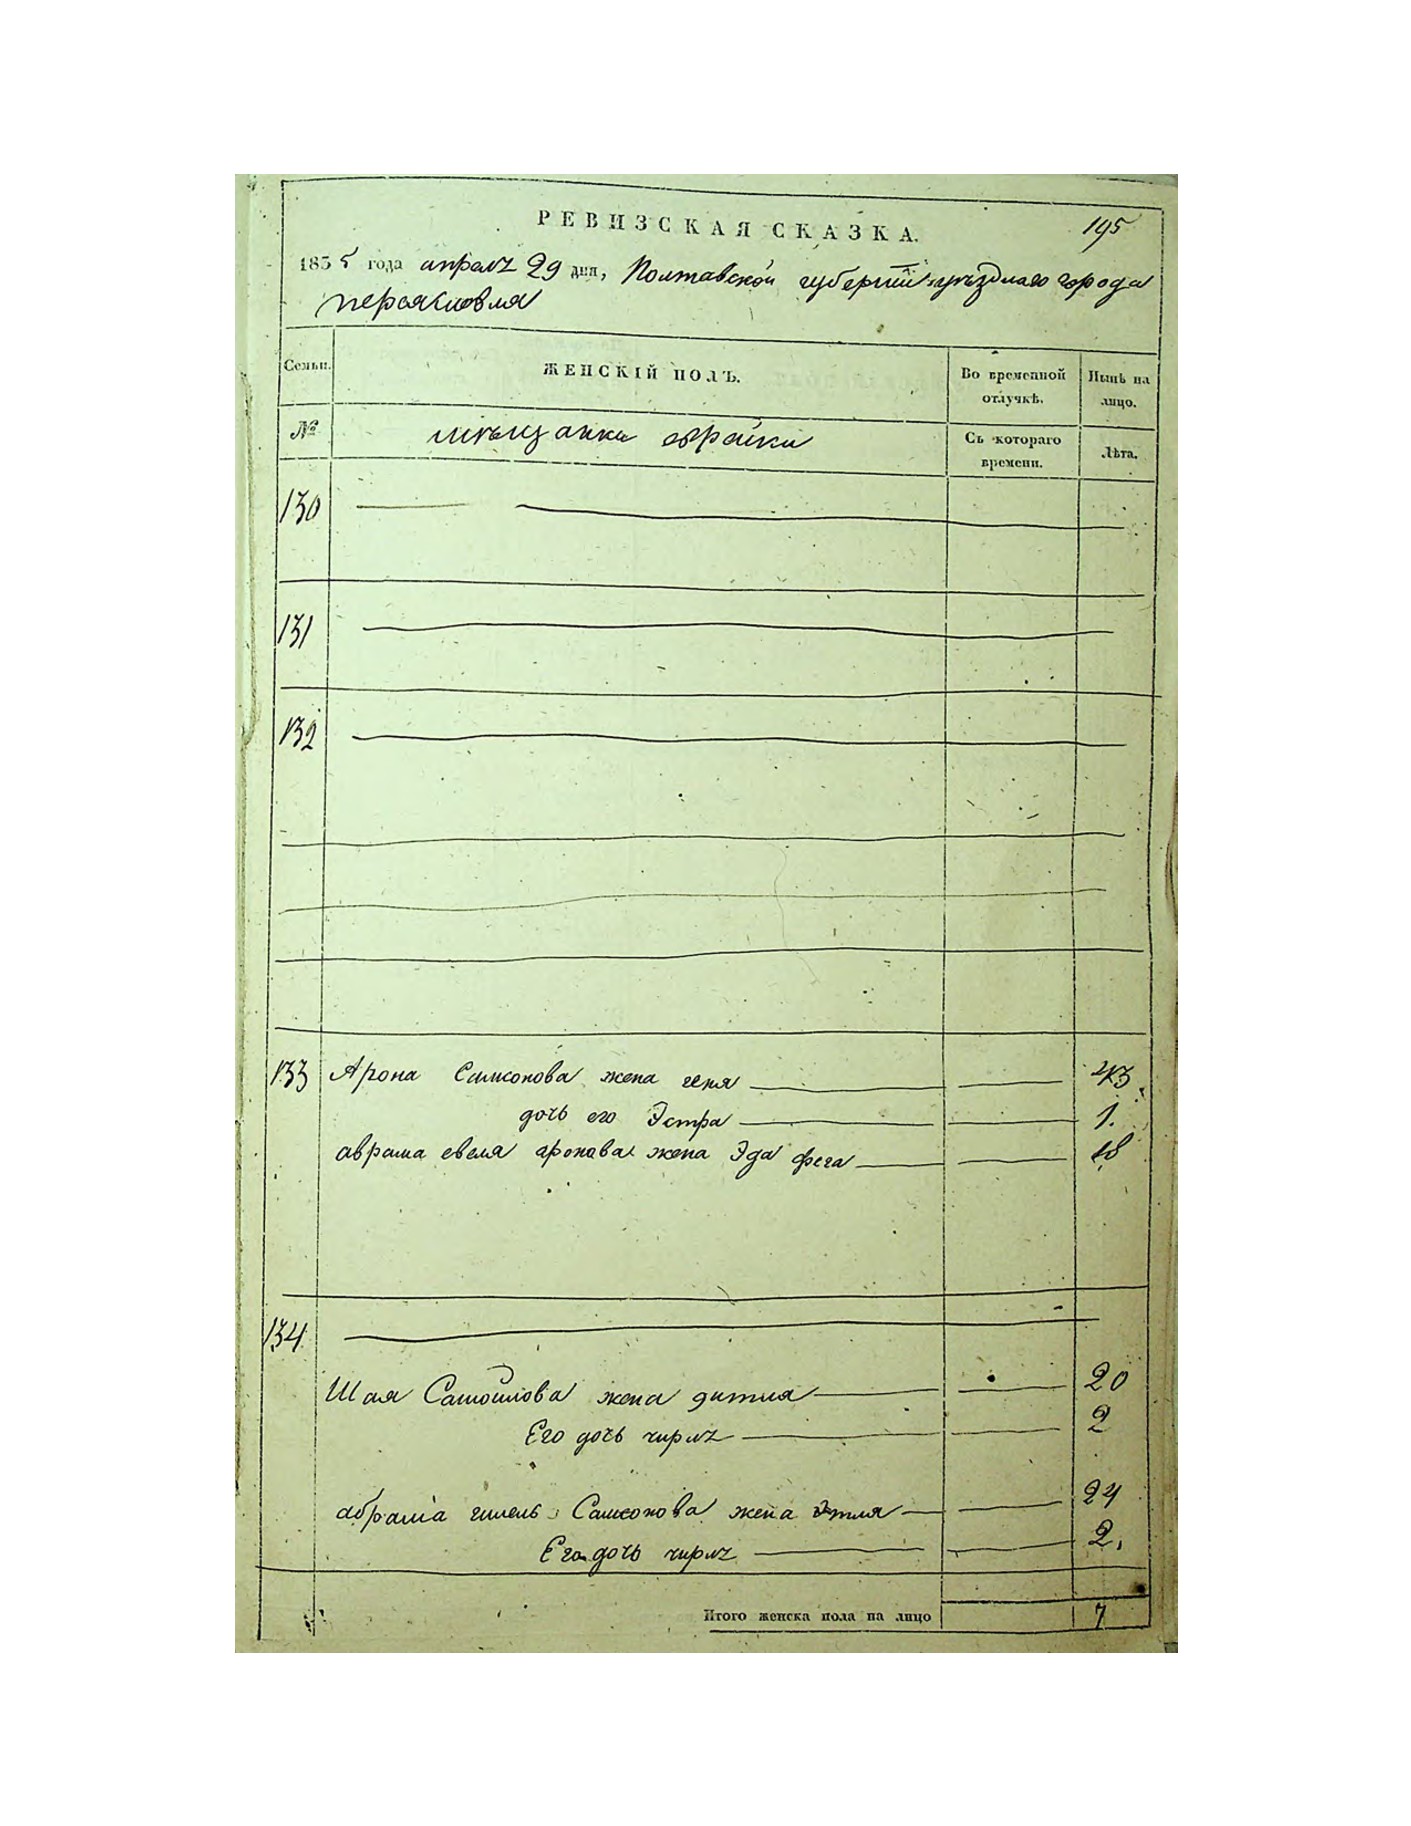 РЕВИЗСКАЯ СКАЗКА.
195
1835 года апреля 29 дня, Полтавской губернии уезднаго города
Переясловля
Семьи. ЖЕНСКІЙ ПОЛЪ. Во временной отлучкѣ. Нынѣ на лицо.
№ мѣщанки еврейки Съ котораго времени. Лѣта.
130
131
132
133 Арона Самсонова жена геня 43
дочь его Эстра 1.
аврама евеля аронова жена Эда фега 18
134
Шая Самойлова жена дитля 20
Его дочь чирля 2
абрама гилель Самсонова жена Этля 24
Его дочь чирля 2.
Итого женска пола на лицо 7